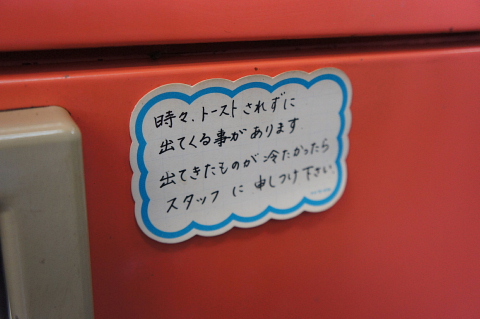 時々、トーストされずに
出てくる事があります.
出てきたものが冷たかったら
スタッフに申しつけ下さい.